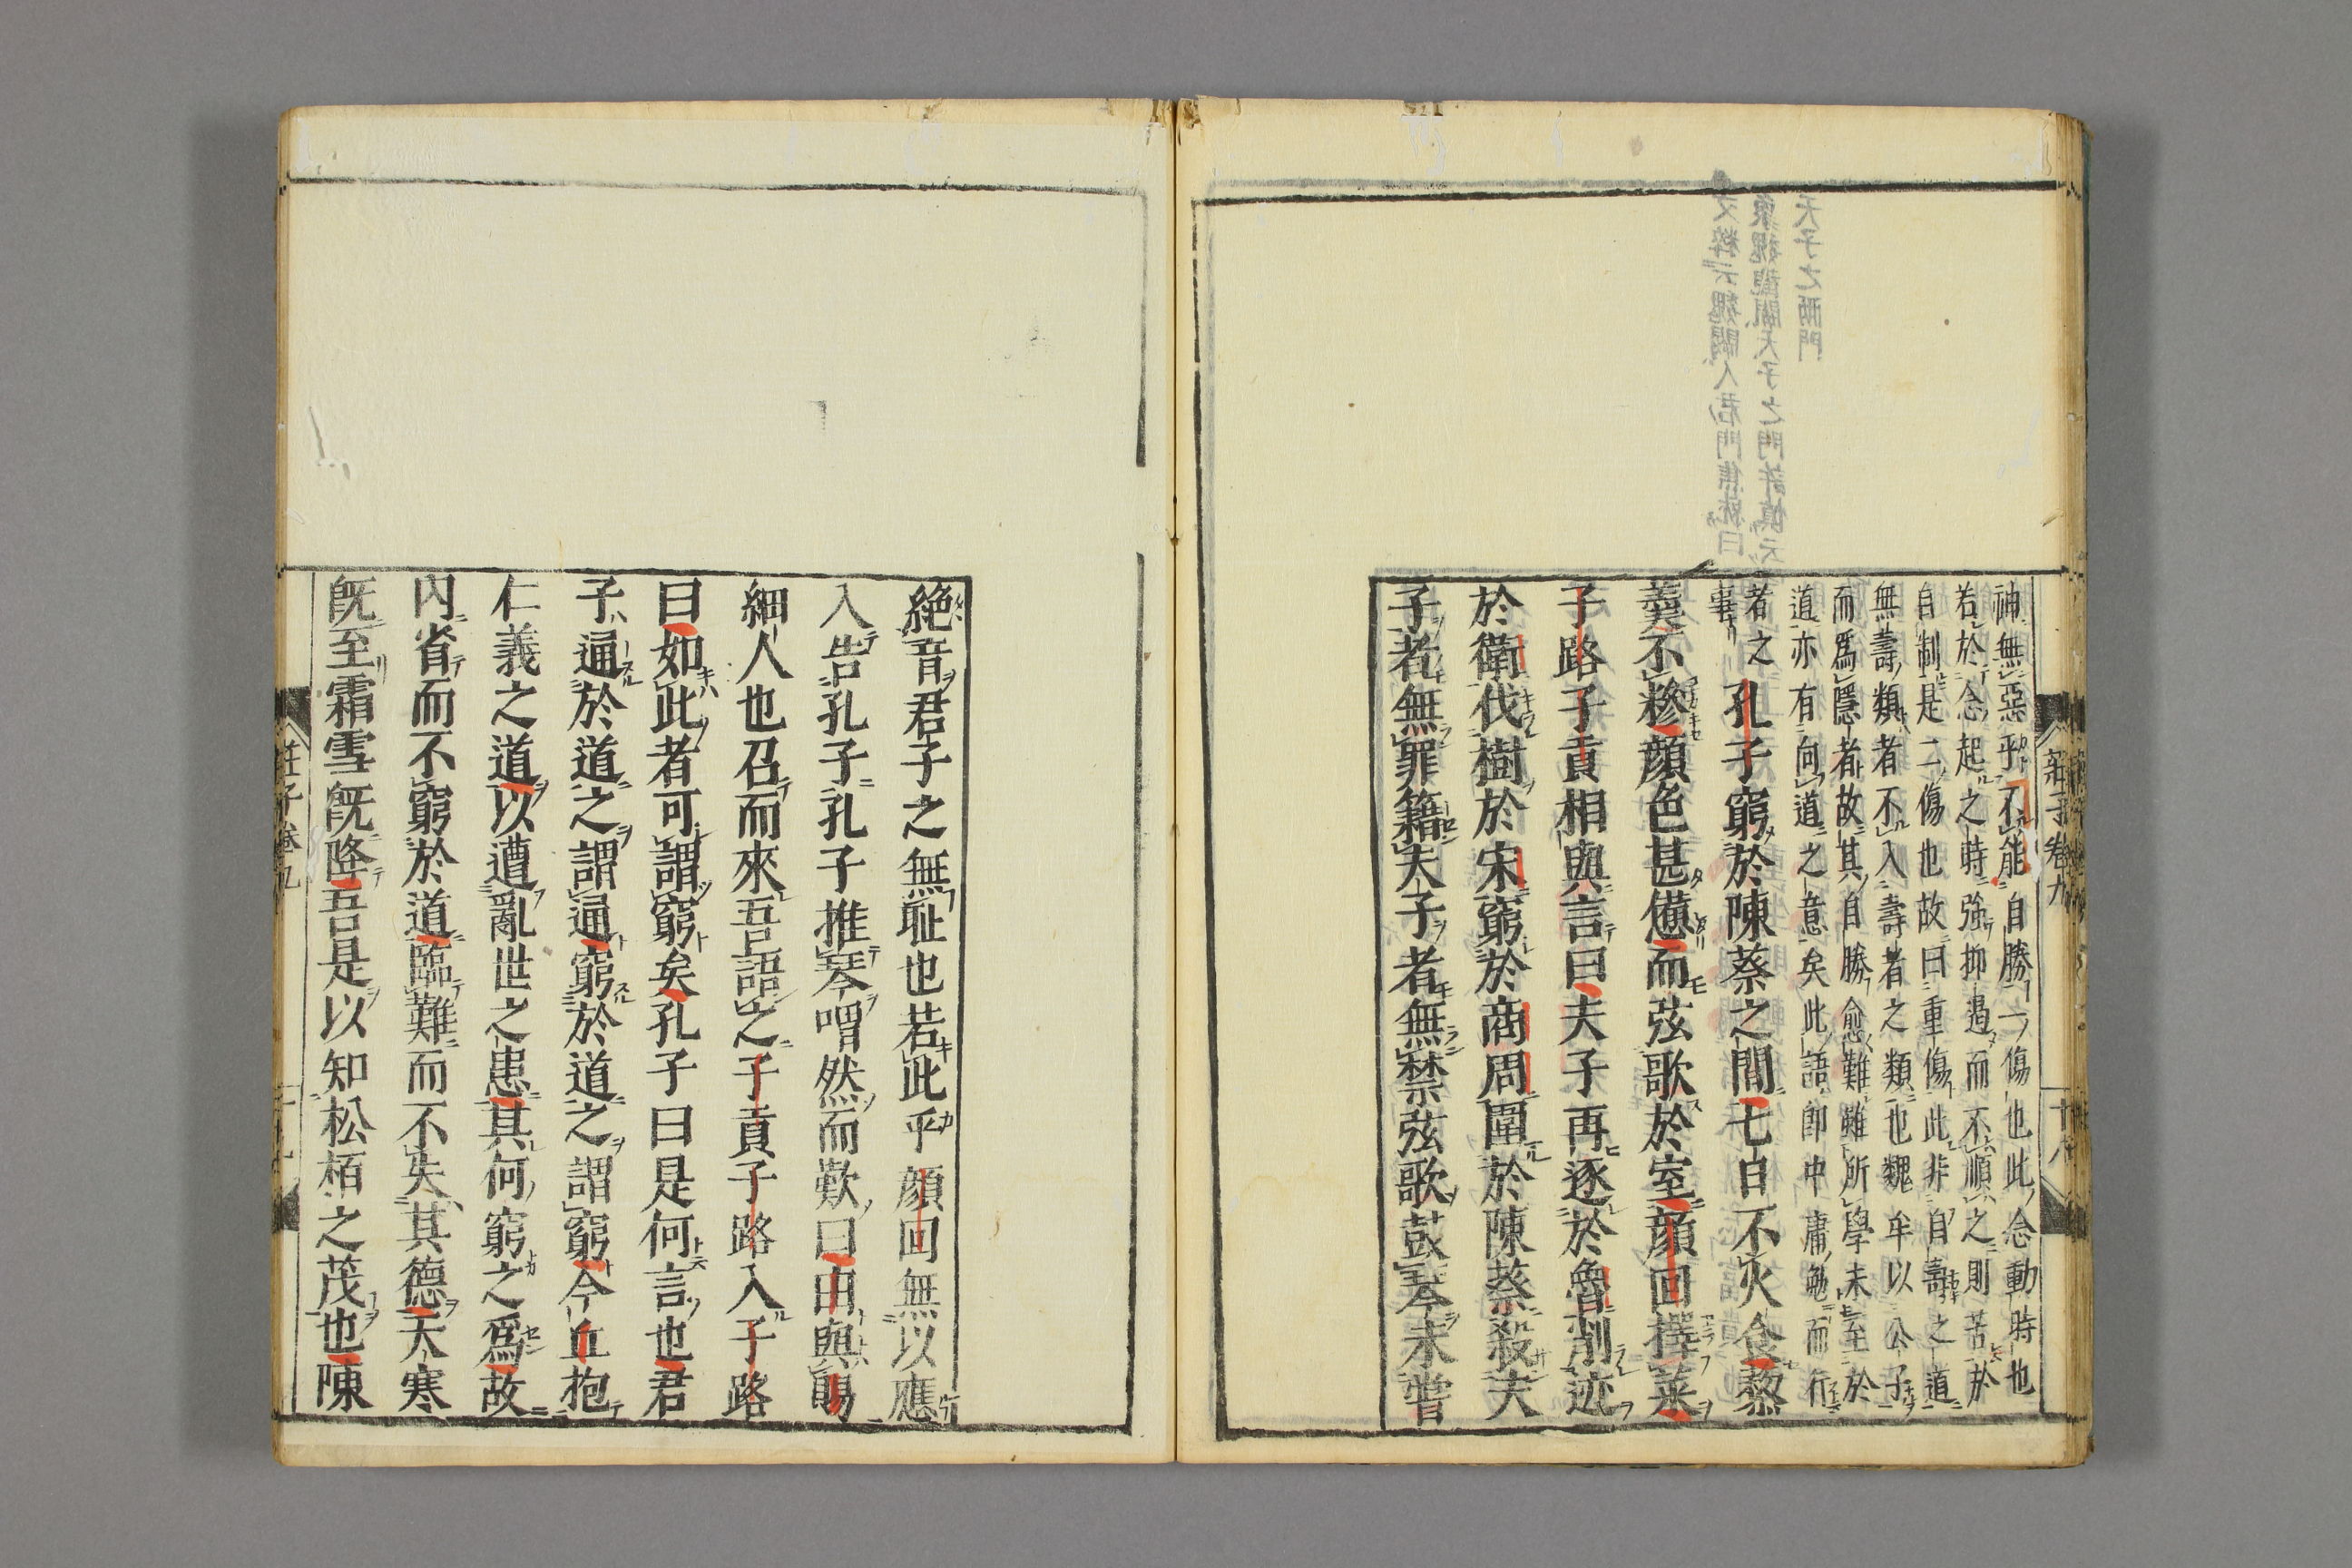 神無惡乎不能自勝一傷也此念動時也
若於念起之時強抑遏而不順之則苦於
自制是二傷也故曰重傷此非自壽之道
無壽類者不入壽者之類也魏牟以公子
而爲隱者故其自勝愈難雖所學未至於
道亦有向道之意矣此語即中庸勉而行
者之
事
孔子窮於陳蔡之間七日不火食藜
羹不糝顔色甚憊而弦歌於室顔回擇菜
子路子貢相與言曰夫子再逐於魯削迹
於衛伐樹於宋窮於商周圍於陳蔡殺夫
子者無罪籍夫子者無禁弦歌鼓琴未嘗
莊子卷九
十八
絶音君子之無耻也若此乎顔回無以應
入告孔子孔子推琴喟然而歎曰由與賜
細人也召而來吾語之子貢子路入子路
曰如此者可謂窮矣孔子曰是何言也君
子通於道之謂通窮於道之謂窮今丘抱
仁義之道以遭亂世之患其何窮之爲故
内省而不窮於道臨難而不失其德天寒
既至霜雪既降吾是以知松栢之茂也陳
莊子卷九